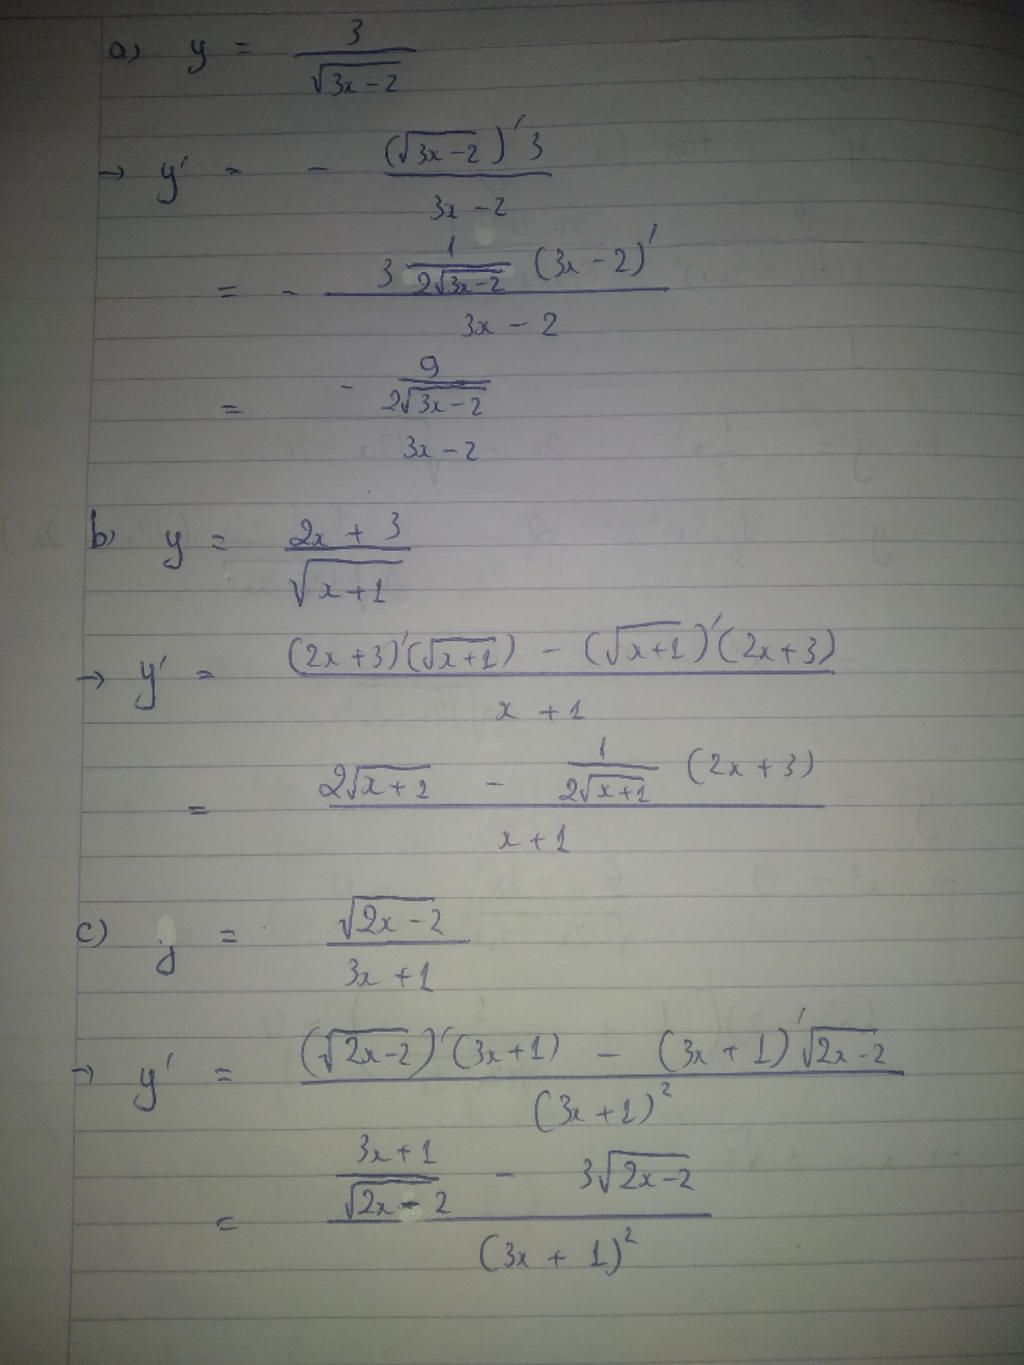 a) y = 3
√3x-2
→ y' = - (√3x-2)' 3
3x-2
= - 3 1/2√3x-2 (3x-2)'
3x-2
= - 9/2√3x-2
3x-2
b) y = 2x + 3
√x+1
→ y' = (2x+3)'(√x+1) - (√x+1)'(2x+3)
x+1
= 2√x+1 - 1/2√x+1 (2x+3)
x+1
c) y = √2x-2
3x+1
→ y' = (√2x-2)'(3x+1) - (3x+1)'√2x-2
(3x+1)²
= 3x+1/√2x-2 - 3√2x-2
(3x+1)²